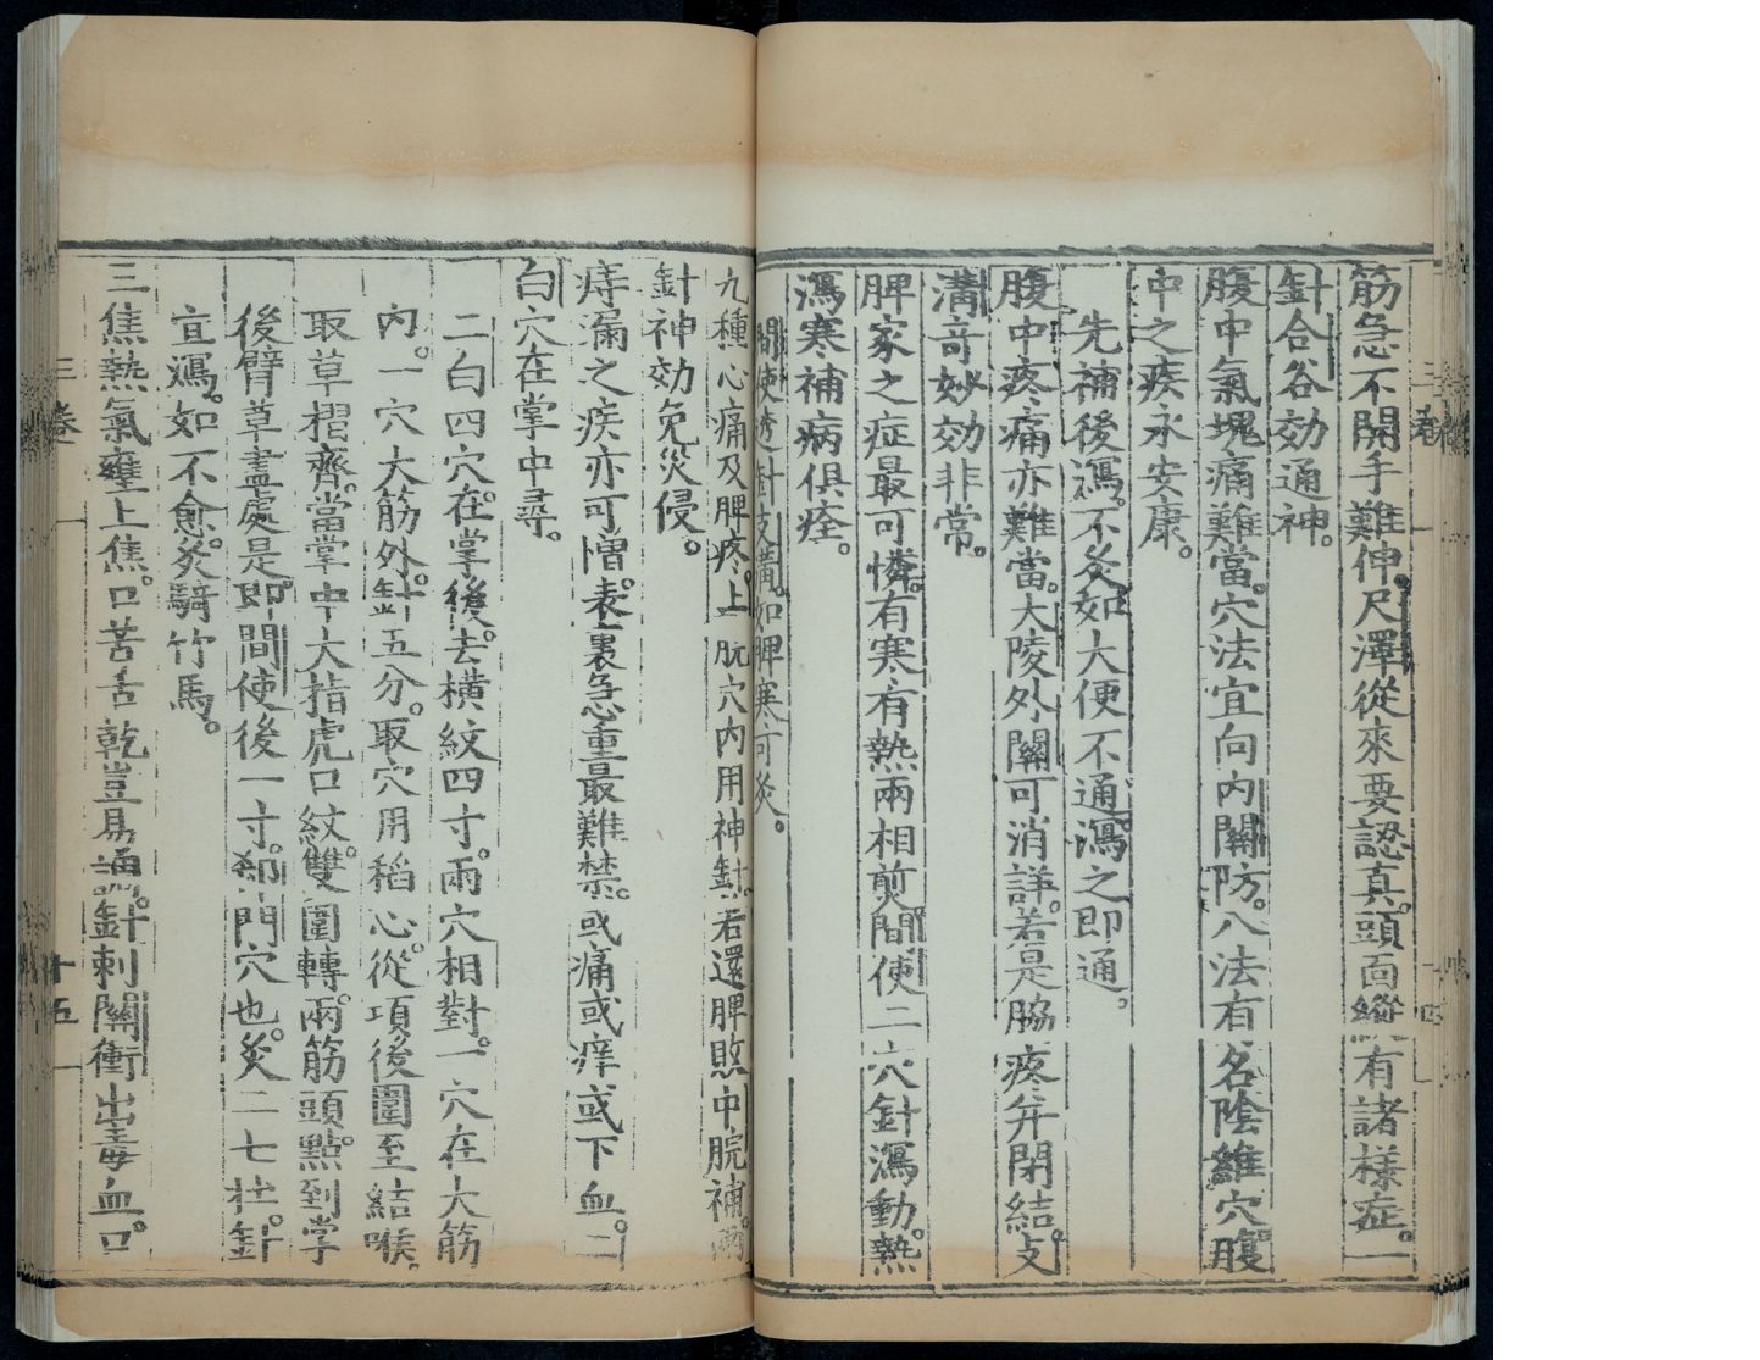 筋急不開手難伸。尺澤從來要認真。頭面縱有諸樣症。一
針合谷効通神。
腹中氣塊痛難當。穴法宜向內關防。八法有名陰維穴。腹
中之疾永安康。
先補後瀉。不灸。如大便不通。瀉之即通。
腹中疼痛亦難當。大陵外關可消詳。若是脇疼并閉結。支
溝奇妙効非常。
脾家之症最可憐。有寒有熱兩相煎。間使二穴針瀉動。熱
瀉寒補病俱痊。
間使透針支溝。如脾寒可灸。
九種心痛及脾疼。上脘穴内用神針。若還脾敗中脘補。兩
針神効免災侵。
痔漏之疾亦可憎。表裏急重最難禁。或痛或痒或下血。二
白穴在掌中尋。
二白四穴。在掌後。去橫紋四寸。兩穴相對。一穴在大筋
内。一穴大筋外。針五分。取穴用稻心。從項後圍至結喉。
取草摺齊。當掌中大指虎口紋。雙圍轉。兩筋頭。點到掌
後臂草盡處是。即間使後一寸。郄門穴也。灸二七壯。針
宜瀉。如不愈。灸騎竹馬。
三焦熱氣壅上焦。口苦舌乾豈易調。針刺關衝出毒血。口
三卷
十五